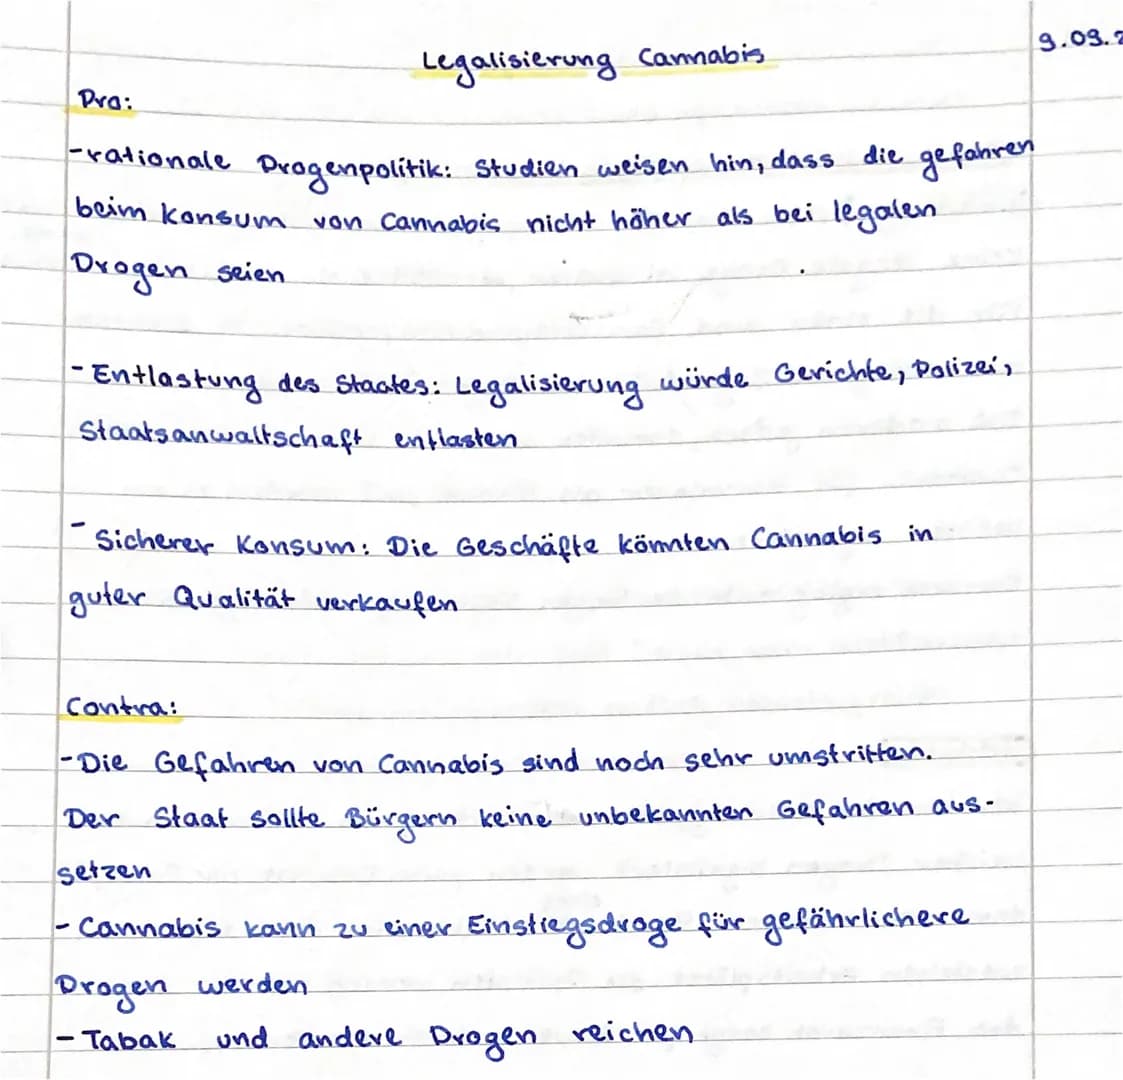 Legalisierung Cannabis
9.09.2
Pro:
-rationale Drogenpolitik: Studien weisen hin, dass die gefahren
beim Konsum von Cannabis nicht höher als bei legalen
Drogen seien
- Entlastung des Staates: Legalisierung würde Gerichte, Polizei,
Staatsanwaltschaft entlasten
- Sicherer Konsum: Die Geschäfte könnten Cannabis in
guter Qualität verkaufen
Contra:
-Die Gefahren von Cannabis sind noch sehr umstritten.
Der Staat sollte Bürgern keine unbekannten Gefahren aus-
setzen
- Cannabis kann zu einer Einstiegsdroge für gefährlichere
Drogen werden
- Tabak und andere Drogen reichen